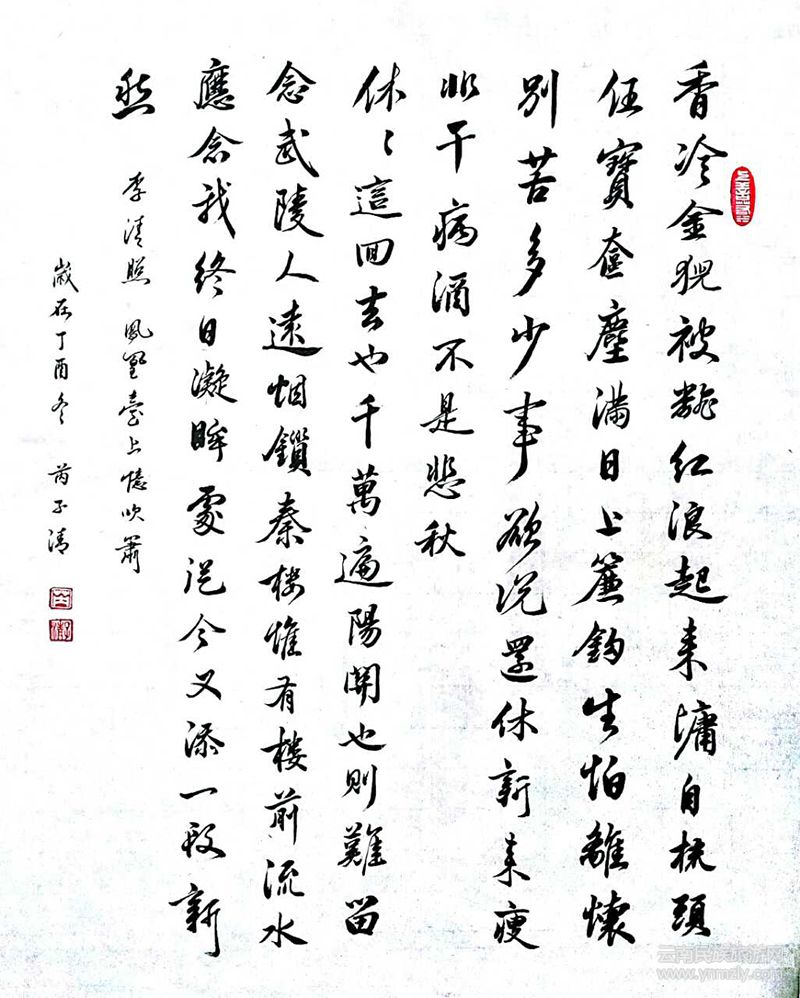 香冷金猊被翻红浪起来慵自梳頭
任寶奩塵滿日上簾鈎生怕離懷
别苦多少事欲说還休新来瘦
非干病酒不是悲秋
休々這回去也千萬遍陽關也則難留
念武陵人遠烟鎖秦楼惟有樓前流水
應念我终日凝眸處從今又添一段新
愁
李清照 鳳凰臺上憶吹簫
歲在丁酉冬 芮子清
云南民族旅游网
www.ynmzly.com